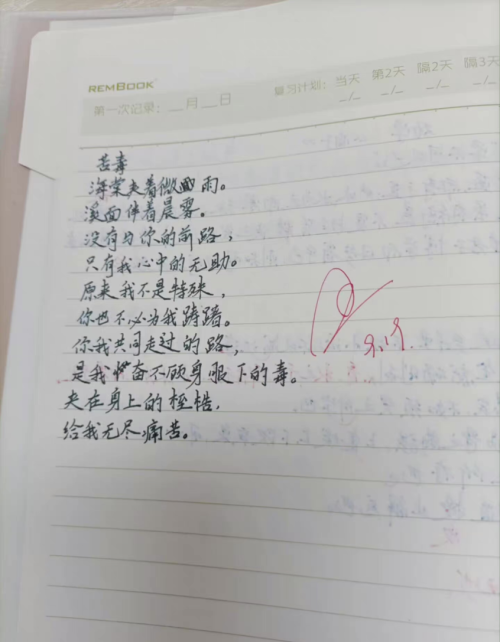 REMBOOK
第一次记录：__月__日 复习计划： 当天 第2天 隔2天 隔3天
_/_ _/_ _/_ _/_
苦毒
海棠夹着微雨。
溪面伴着晨雾。
没有与你的前路，
只有我心中的无助。
原来我不是特殊，
你也不必为我踌躇。
你我共同走过的路，
是我奋不顾身服下的毒。
夹在身上的桎梏，
给我无尽痛苦。
9.19